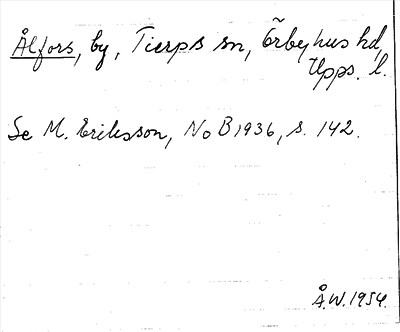 Ålfors, by, Tierps sn, Örbyhus hd,
Upps. l.
Se M. Eriksson, NoB 1936, s. 142.
Å.W. 1954.